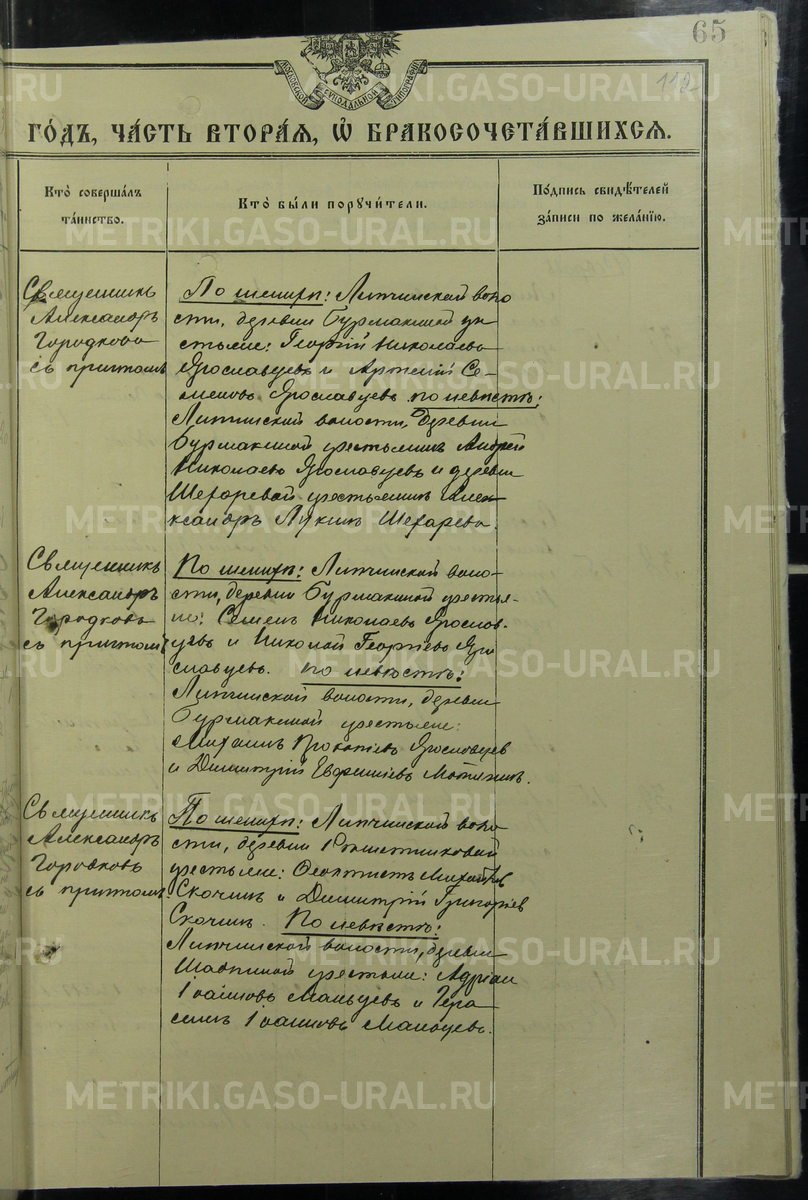 65
112
МОСКОВСКОЙ СѴНОДАЛЬНОЙ ТИПОГРАФІИ
ГО́ДЪ, ЧА́СТЬ ВТОРА́Я, Ѡ҆ БРАКОСОЧЕТА́ВШИХСЯ.
Кто̀ соверша́лъ
та́инство.
Кто̀ бы́ли порꙋчи́тели.
По́дпись свидѣ́телей
за́писи по жела́нїю.
Священникъ
Александръ
Городковъ
съ причтомъ
По женихѣ: Липчинской воло
сти, деревни Бурмакиной кре
стьяне: Георгій Николаевъ
Ярославцевъ и Артемій Се-
меновъ Ярославцевъ по невѣстѣ:
Липчинской волости, деревни
Бурмакиной крестьянинъ Андрей
Николаевъ Ярославцевъ и деревни
Шефаревой крестьянинъ Алек
ксандръ Лукинъ Шефаревъ.
Священникъ
Александръ
Городковъ
съ причтомъ
По женихѣ: Липчинской воло-
сти, деревни Бурмакиной крестья-
не: Семенъ Николаевъ Ярослав-
цевъ и Николай Георгіевъ Яро
славцевъ. по невѣстѣ:
Липчинской волости, деревни
Бурмакиной крестьяне:
Михаилъ Прокопіевъ Ярославцев
и Димитрій
Священникъ
Александръ
Городковъ
съ причтомъ
По женихѣ: Липчинской воло
сти, деревни Решетниковой
крестьяне: Феоктистъ Михайлов
Скочинъ и Димитрій Григоріев
Скочинъ. По невѣстѣ:
Липчинской волости, деревни
крестьяне: Адріан
Іоанновъ Мальцевъ и Гера
симъ Іоанновъ Мальцевъ.
METRIKI.GASO-URAL.RU